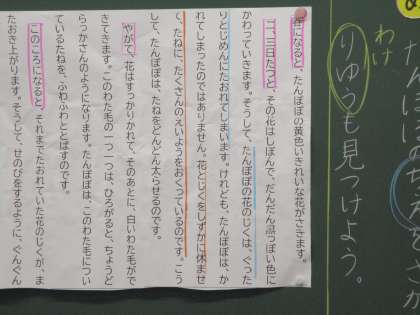 ぽぽのちえをさが
わけ
りゆうも見つけよう。
春になると、たんぽぽの黄色いきれいな花がさきます。
二、三日たつと、その花はしぼんで、だんだん黒っぽい色に
かわっていきます。そうして、たんぽぽの花のじくは、ぐった
りとじめんにたおれてしまいます。けれども、たんぽぽは、か
れてしまったのではありません。花とじくをしずかに休ませ
て、たねに、たくさんのえいようをおくっているのです。こう
して、たんぽぽは、たねをどんどん太らせるのです。
やがて、花はすっかりかれて、そのあとに、白いわた毛がで
きてきます。このわた毛の一つ一つは、ひろがると、ちょうど
らっかさんのようになります。たんぽぽは、このわた毛につい
ているたねを、ふわふわととばすのです。
このころになると、それまでたおれていた花のじくが、ま
たおき上がります。そうして、せのびをするように、ぐんぐん